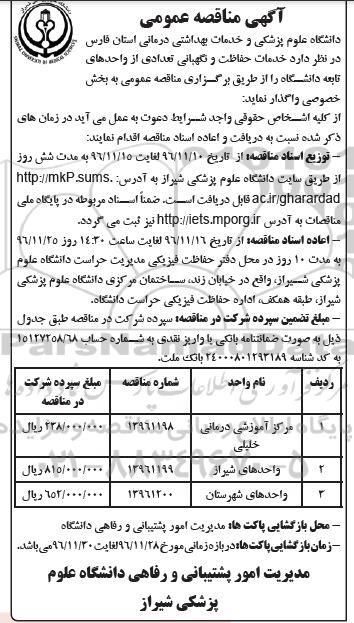 آگهی مناقصه عمومی
دانشگاه علوم پزشکی و خدمات بهداشتی درمانی استان فارس
در نظر دارد خدمات حفاظت و نگهبانی تعدادی از واحدهای
تابعه دانشگاه را از طریق برگزاری مناقصه عمومی به بخش
خصوصی واگذار نماید:
از کلیه اشخاص حقوقی واجد شرایط دعوت به عمل می آید در زمان های
ذکر شده نسبت به دریافت و اعاده اسناد مناقصه اقدام نمایند:
- توزیع اسناد مناقصه: از تاریخ ۹۶/۱۱/۱۰ لغایت ۹۶/۱۱/۱۵ به مدت شش روز
از طریق سایت دانشگاه علوم پزشکی شیراز به آدرس: http://mkP.sums.
ac.ir/gharardad قابل دریافت است. ضمناً اسناد مربوطه در پایگاه ملی
مناقصات به آدرس http://iets.mporg.ir نیز ثبت می گردد.
- اعاده اسناد مناقصه: از تاریخ ۹۶/۱۱/۱۶ لغایت ساعت ۱۴:۳۰ روز ۹۶/۱۱/۲۵
به مدت ۱۰ روز در محل دفتر حفاظت فیزیکی مدیریت حراست دانشگاه علوم
پزشکی شیراز، واقع در خیابان زند، ساختمان مرکزی دانشگاه علوم پزشکی
شیراز، طبقه همکف، اداره حفاظت فیزیکی حراست دانشگاه.
- مبلغ تضمین سپرده شرکت در مناقصه: سپرده شرکت در مناقصه طبق جدول
ذیل به صورت ضمانتنامه بانکی یا واریز نقدی به شماره حساب ۱۵۱۲۷۲۵۸/۶۸
به کد شناسه ۲۴۰۰۰۸۰۱۲۹۳۱۸۹ بانک ملت.
ردیف نام واحد شماره مناقصه مبلغ سپرده شرکت در مناقصه
۱ مرکز آموزشی درمانی خلیلی ۱۳۹۶۱۱۹۸ ۲۳۸/۰۰۰/۰۰۰ ریال
۲ واحدهای شیراز ۱۳۹۶۱۱۹۹ ۸۱۵/۰۰۰/۰۰۰ ریال
۳ واحدهای شهرستان ۱۳۹۶۱۲۰۰ ۶۵۲/۰۰۰/۰۰۰ ریال
- محل بازگشایی پاکت ها: مدیریت امور پشتیبانی و رفاهی دانشگاه
- زمان بازگشایی پاکت‌ها: در بازه زمانی مورخ ۹۶/۱۱/۲۸ لغایت ۹۶/۱۱/۳۰ می‌باشد.
مدیریت امور پشتیبانی و رفاهی دانشگاه علوم
پزشکی شیراز